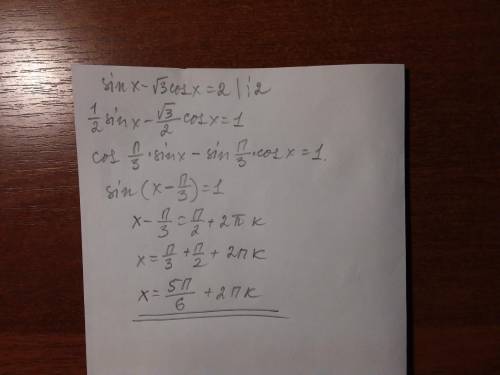 sin x - √3 cos x = 2 | : 2
1/2 sin x - √3/2 cos x = 1
cos π/3 · sin x - sin π/3 · cos x = 1.
sin (x - π/3) = 1
x - π/3 = π/2 + 2πk
x = π/3 + π/2 + 2πk
x = 5π/6 + 2πk